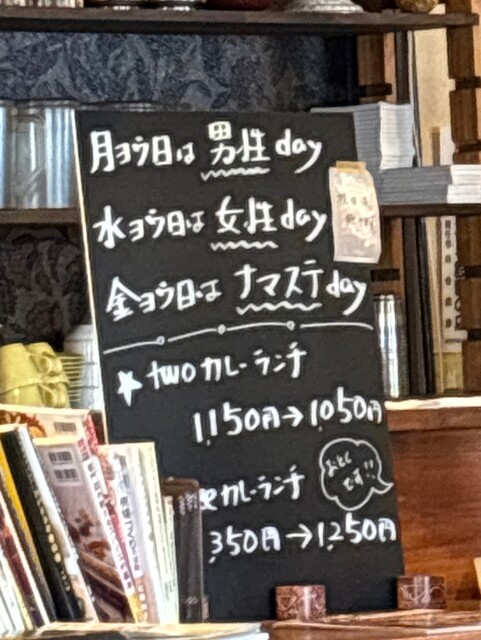 月ヨウ日は 男性day
水ヨウ日は 女性day
金ヨウ日は ナマステday
★ twoカレーランチ
1,150円→1,050円
eカレーランチ
おとくです!!
350円→1,250円